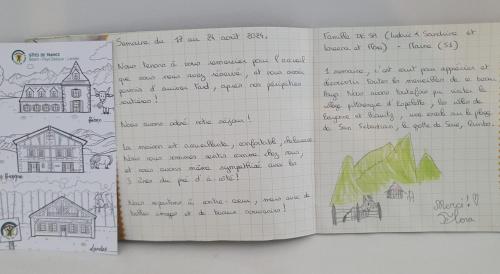 GÎTES DE FRANCE
Béarn - Pays Basque - Landes
Béarn
Landes
Semaine du 18 au 24 août 2024.
Nous tenons à vous remercier pour l'accueil
que vous nous avez réservé, et vous avoir
permis d'arriver tard, après nos péripéties
routières !
Nous avons adoré notre séjour !
La maison est accueillante, confortable, chaleureuse
Nous nous sommes sentis comme chez nous,
et nous avons même sympathisé avec les
3 ânes du pré d'à côté !
Nous repartons à contre-cœur, mais avec de
belles images et de beaux souvenirs !
Famille DE SA (Ludovic & Sandrine et
et Flora) - Marne (51)
1 semaine, c'est court pour apprécier et
découvrir toutes les merveilles de ce beau
Pays. Nous avons toutefois pu visiter le
village pittoresque d'Espelette, les villes de
Bayonne et Biarritz, une virée sur la plage
de San Sebastian, la grotte de Sare,
Merci !!
Flora